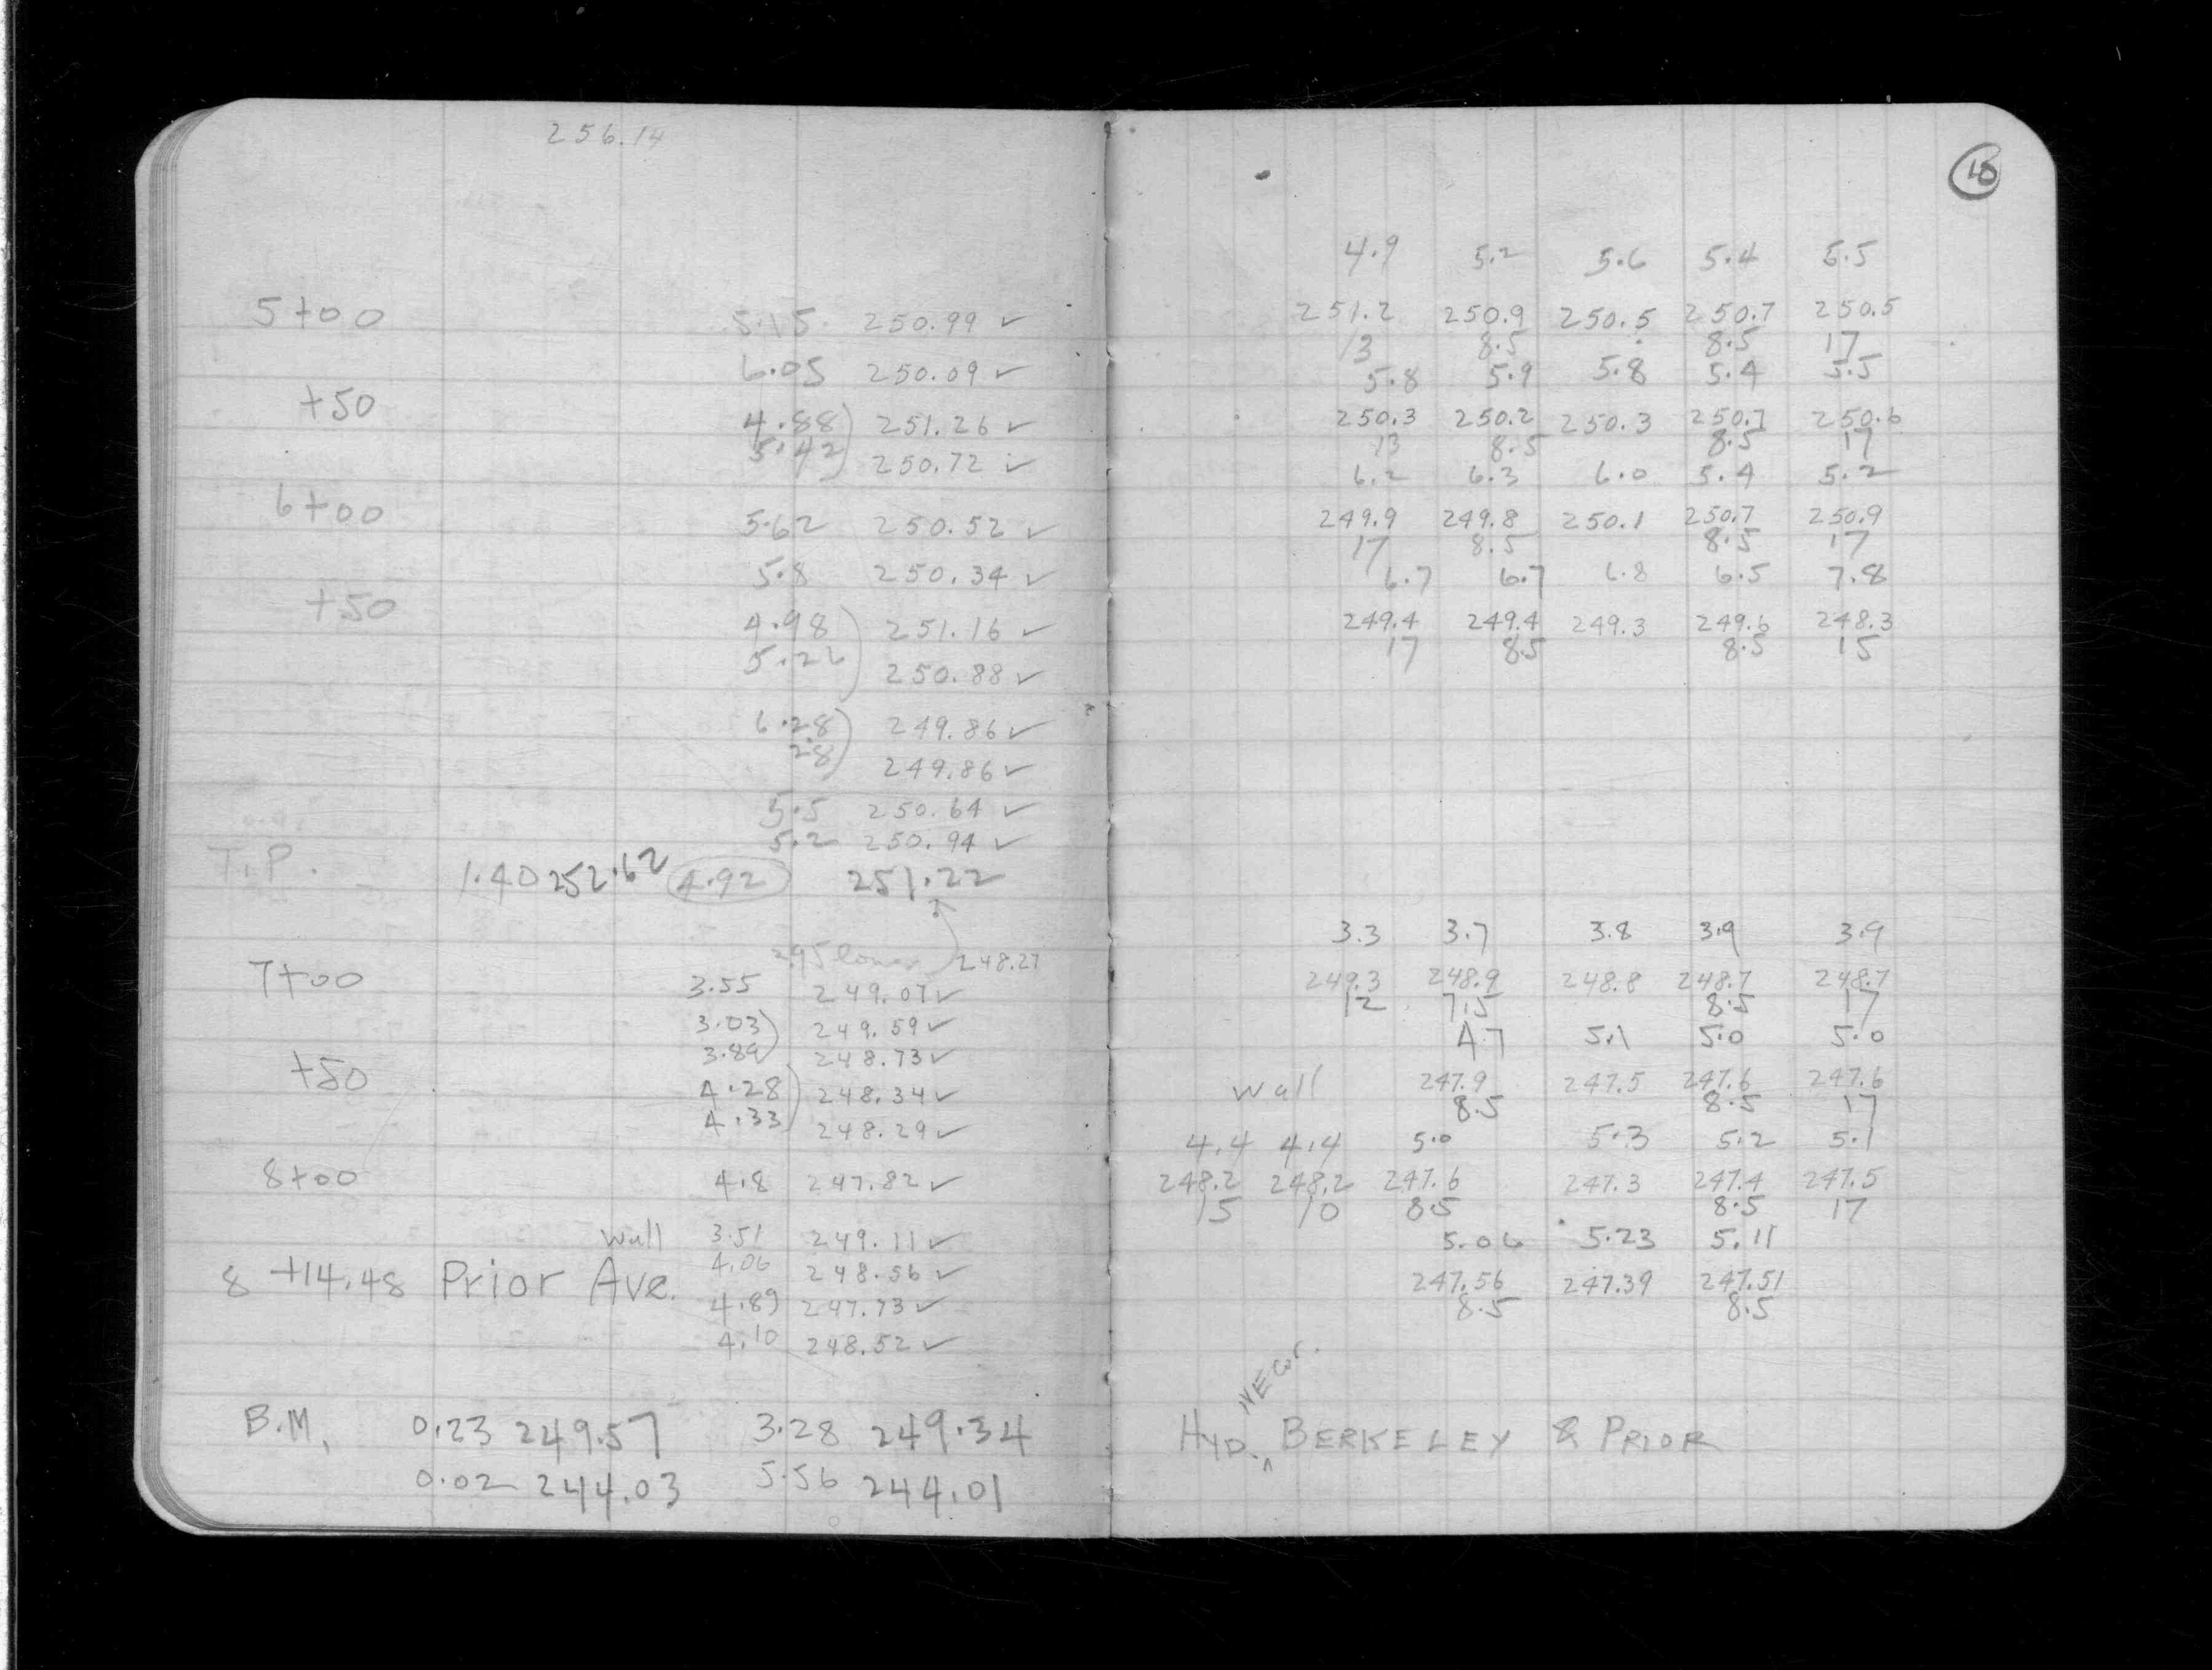 256.14
5+00 5.15 250.99 ✓
6.05 250.09 ✓
+50 4.88) 251.26 ✓
5.42) 250.72 ✓
6+00 5.62 250.52 ✓
5.8 250.34 ✓
+50 4.98) 251.16 ✓
5.26) 250.88 ✓
6.28) 249.86 ✓
28) 249.86 ✓
5.5 250.64 ✓
5.2 250.94 ✓
T.P. 1.40 252.62 4.92 251.22
2.95 lower 248.27
7+00 3.55 249.07 ✓
3.03) 249.59 ✓
3.89) 248.73 ✓
+50 4.28) 248.34 ✓
4.33) 248.29 ✓
8+00 4.8 247.82 ✓
Wall 3.51 249.11 ✓
4.06 248.56 ✓
8 +14.48 Prior Ave.
4.89 247.73 ✓
4.10 248.52 ✓
B.M. 0.23 249.57 3.28 249.34
0.02 244.03 5.56 244.01
4.9 5.2 5.6 5.4 5.5
251.2 250.9 250.5 250.7 250.5
13 8.5 8.5 17
5.8 5.9 5.8 5.4 5.5
250.3 250.2 250.3 250.7 250.6
13 8.5 8.5 17
6.2 6.3 6.0 5.4 5.2
249.9 249.8 250.1 250.7 250.9
17 8.5 8.5 17
6.7 6.7 6.8 6.5 7.8
249.4 249.4 249.3 249.6 248.3
17 8.5 8.5 15
3.3 3.7 3.8 3.9 3.9
249.3 248.9 248.8 248.7 248.7
12 7.5 8.5 17
4.7 5.1 5.0 5.0
Wall 247.9 247.5 247.6 247.6
8.5 8.5 17
4.4 4.4 5.0 5.3 5.2 5.1
248.2 248.2 247.6 247.3 247.4 247.5
15 10 8.5 8.5 17
5.06 5.23 5.11
247.56 247.39 247.51
8.5 8.5
NE Cor.
HYD. ^ BERKELEY & PRIOR